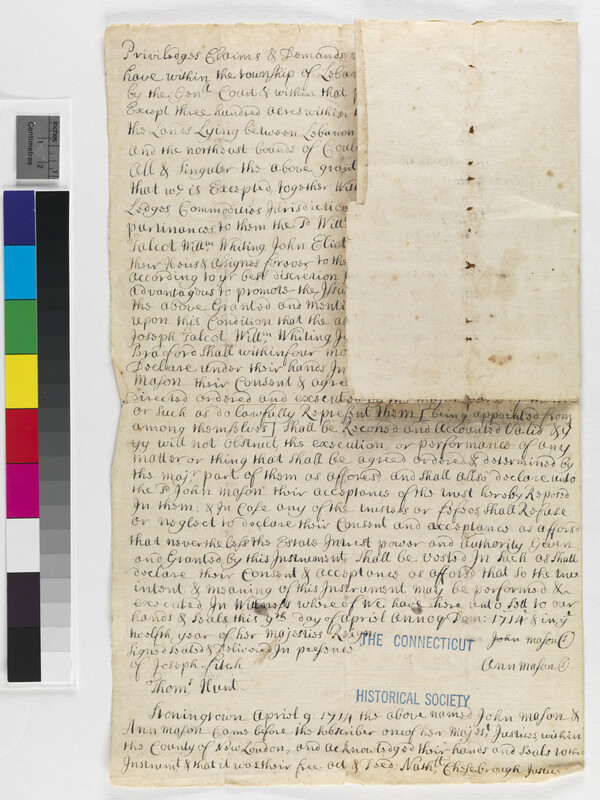 Priviledges Claims & Demands
have within the township of Leban
by the Genll Court & within that
Except three hundred acres within
the Lands Lying between Lebanon
and the northeast bounds of
All & Singuler the above grant
that wc is Excepted, together With
Ledges Commodities Jurisdiction
purtinances to them the sd Will
Talcot Willm Whiting John Eliot
their Heirs & Asignes forever to the
according to yr best discretion
advantagous to promote the
the above Granted and menti
upon this Condition that the
Joseph Talcot Willm Whiting J
Bradford Shall within four mo
Declare under their hands In
Mason their Consent & agree
directed ordered and executed by the major part of them
or such as do lawfully Represent them [being appointed from
among themselves] Shall be Reconed and Accounted Valid & yt
yy will not obstruct the execution or performance of any
matter or thing that shall be agreed ordered & determined by
the majr part of them as aforesd and shall also declare unto
the sd John mason their acceptance of the trust hereby Reposed
In them; & In Case any of the trustees or feofees Shall Refuse
or neglect to declare their Consent and acceptance as aforesd
that never the less the Estate Intrest power and authority Given
and Granted by this Instrument Shall be vested In such as shall
declare their Consent & acceptance as aforesd that so the true
intent & meaning of this Instrument may be performed &
executed In Witness whereof We have here unto sett to our
hands & seals this 9th day of april Anno Dom: 1714 & in ye
twelfth year of her majesties Reign
Signed sealed & Delivered In presence
of Joseph Fitch
Thoms Hunt
John mason
Ann mason
THE CONNECTICUT
HISTORICAL SOCIETY
Stoningtown Apriol 9 1714 the above named John Mason &
Ann mason Came before the subscriber one of her Majests Justices within
the County of New London, and acknowledged their hands and seals to this
Instrumt & that it was their free act & Deed Nathll Chesebrough Justice
Centimetres
inches
1
2